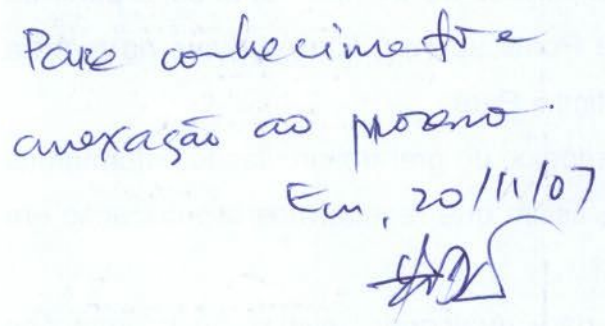 Para conhecimento e
anexação ao processo.
Em, 20/11/07